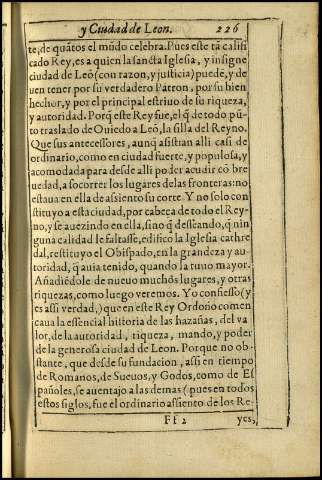 y Ciudad de Leon. 226
te, de quãtos el mũdo celebra. Pues este tã califi
cado Rey, es a quien la sancta Iglesia, y insigne
ciudad de Leõ (con razon, y justicia) puede, y de
uen tener por su verdadero Patron, por su bien
hechor, y por el principal estriuo de su riqueza,
y autoridad. Porq̃ este Rey fue, el q̃ de todo pũ-
to traslado de Ouiedo a Leõ, la silla del Reyno.
Que sus antecessores, aunq̃ assistian alli casi de
ordinario, como en ciudad fuerte, y populosa, y
acomodada para desde alli poder acudir cõ bre
uedad, a socorrer los lugares de las fronteras: no
estaua en ella de assiento su corte. Y no solo con
stituyo a esta ciudad, por cabeça de todo el Rey-
no, y se auezindo en ella, sino q̃ desseando, q̃ nin
guna calidad le faltasse, edifico la Iglesia cathre
dal, restituyo el Obispado, en la grandeza y au-
toridad, q̃ auia tenido, quando la tuuo mayor.
Añadiẽdole de nueuo muchos lugares, y otras
riquezas, como luego veremos. Yo confiesso (y
es assi verdad,) que en este Rey Ordoño comen
caua la essencial historia de las hazañas, del va
lor, de la autoridad, riqueza, mando, y poder
de la generosa ciudad de Leon. Porque no ob-
stante, que desde su fundacion, assi en tiempo
de Romanos, de Sueuos, y Godos, como de Es
pañoles, se auentajo a las demas (pues en todos
estos siglos, fue el ordinario assiento de los Re-
Ff 2 yes,